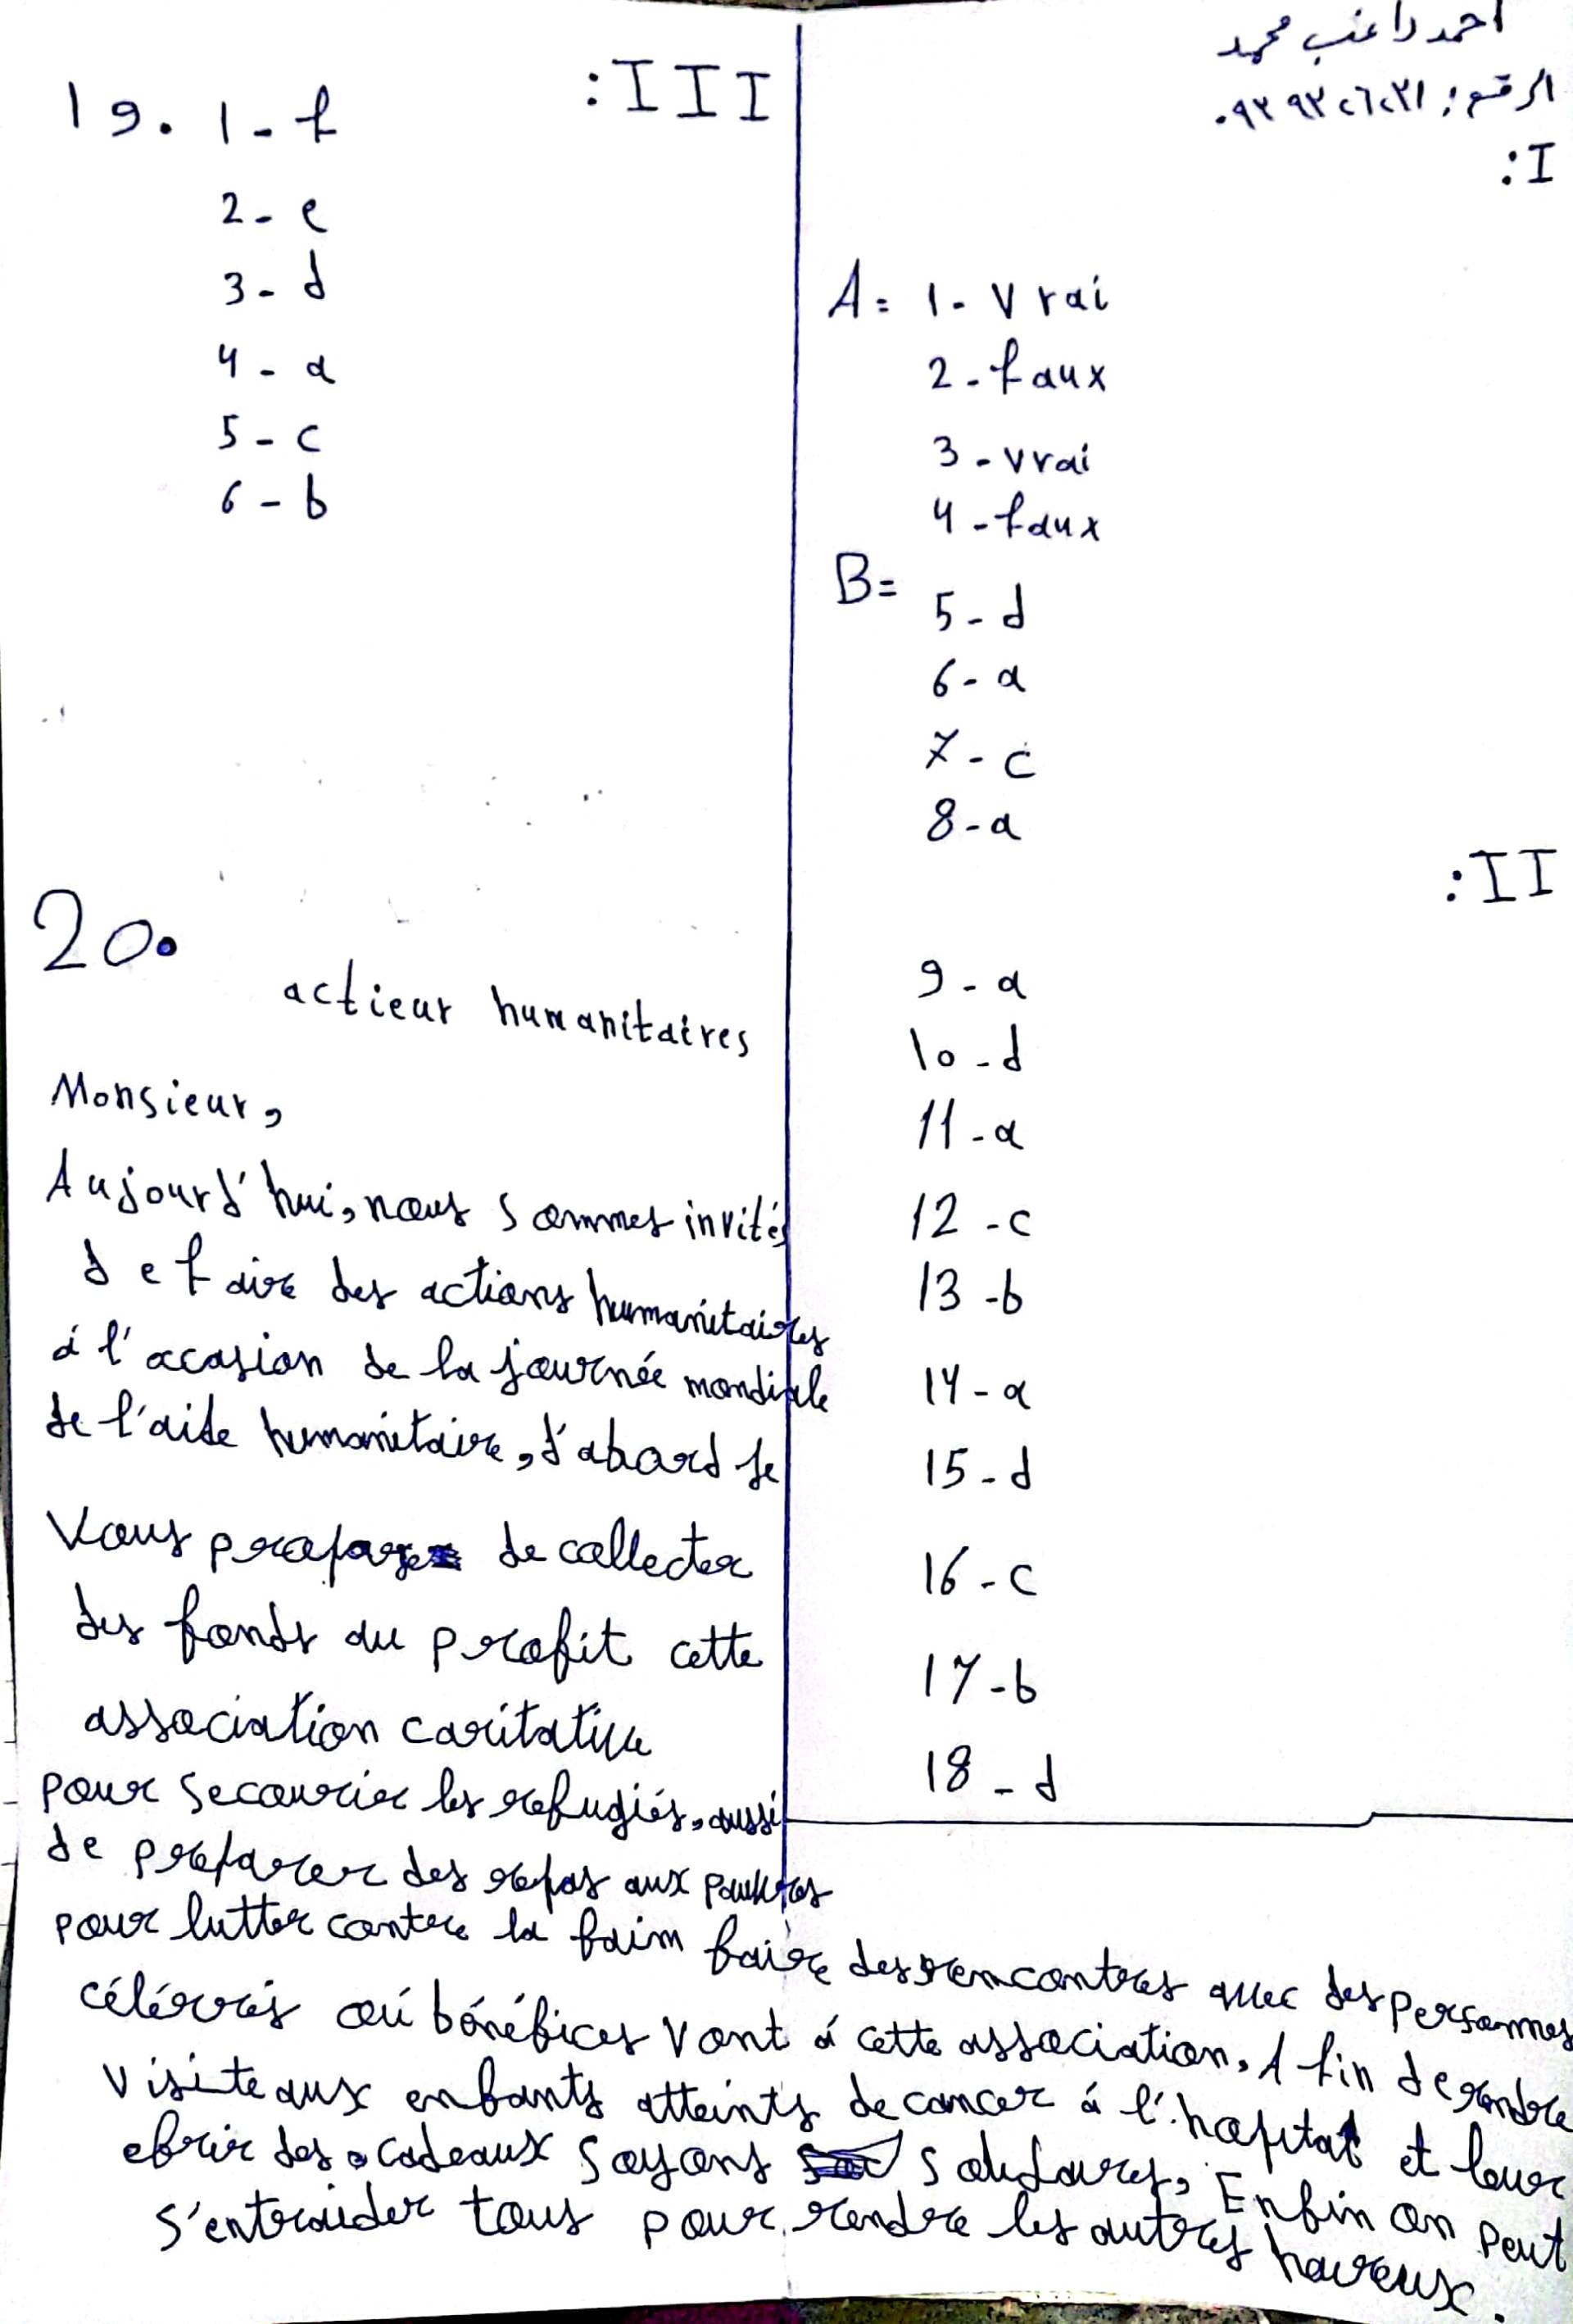 احمد راغب محمد
:I
A= 1- Vrai
2- faux
3- vrai
4- faux
B=
5- d
6- a
7- c
8- a
:II
9- a
10- d
11- a
12 - c
13 - b
14 - a
15 - d
16 - c
17 - b
18 - d
:III
19. 1- f
2- e
3- d
4- a
5- c
6- b
20.
actieur humanitaires
Monsieur,
Aujourd'hui, nous sommes invités
de faire des actions humanitaires
à l'occasion de la journée mondiale
de l'aide humanitaire, d'abord je
vous propose de collecter
des fonds au profit cette
association caritative
pour secourier les refugiés, aussi
de préparer des repas aux pauvres
pour lutter contre la faim faire des rencontres avec des personnes
où bénéfices vont á cette association. A fin de rendre
visite aux enfants atteints de cancer á l'hopital et leur
ofrir des cadeaux soyons solidaires, Enfin on peut
s'entraider tous pour rendre les autres heureux.